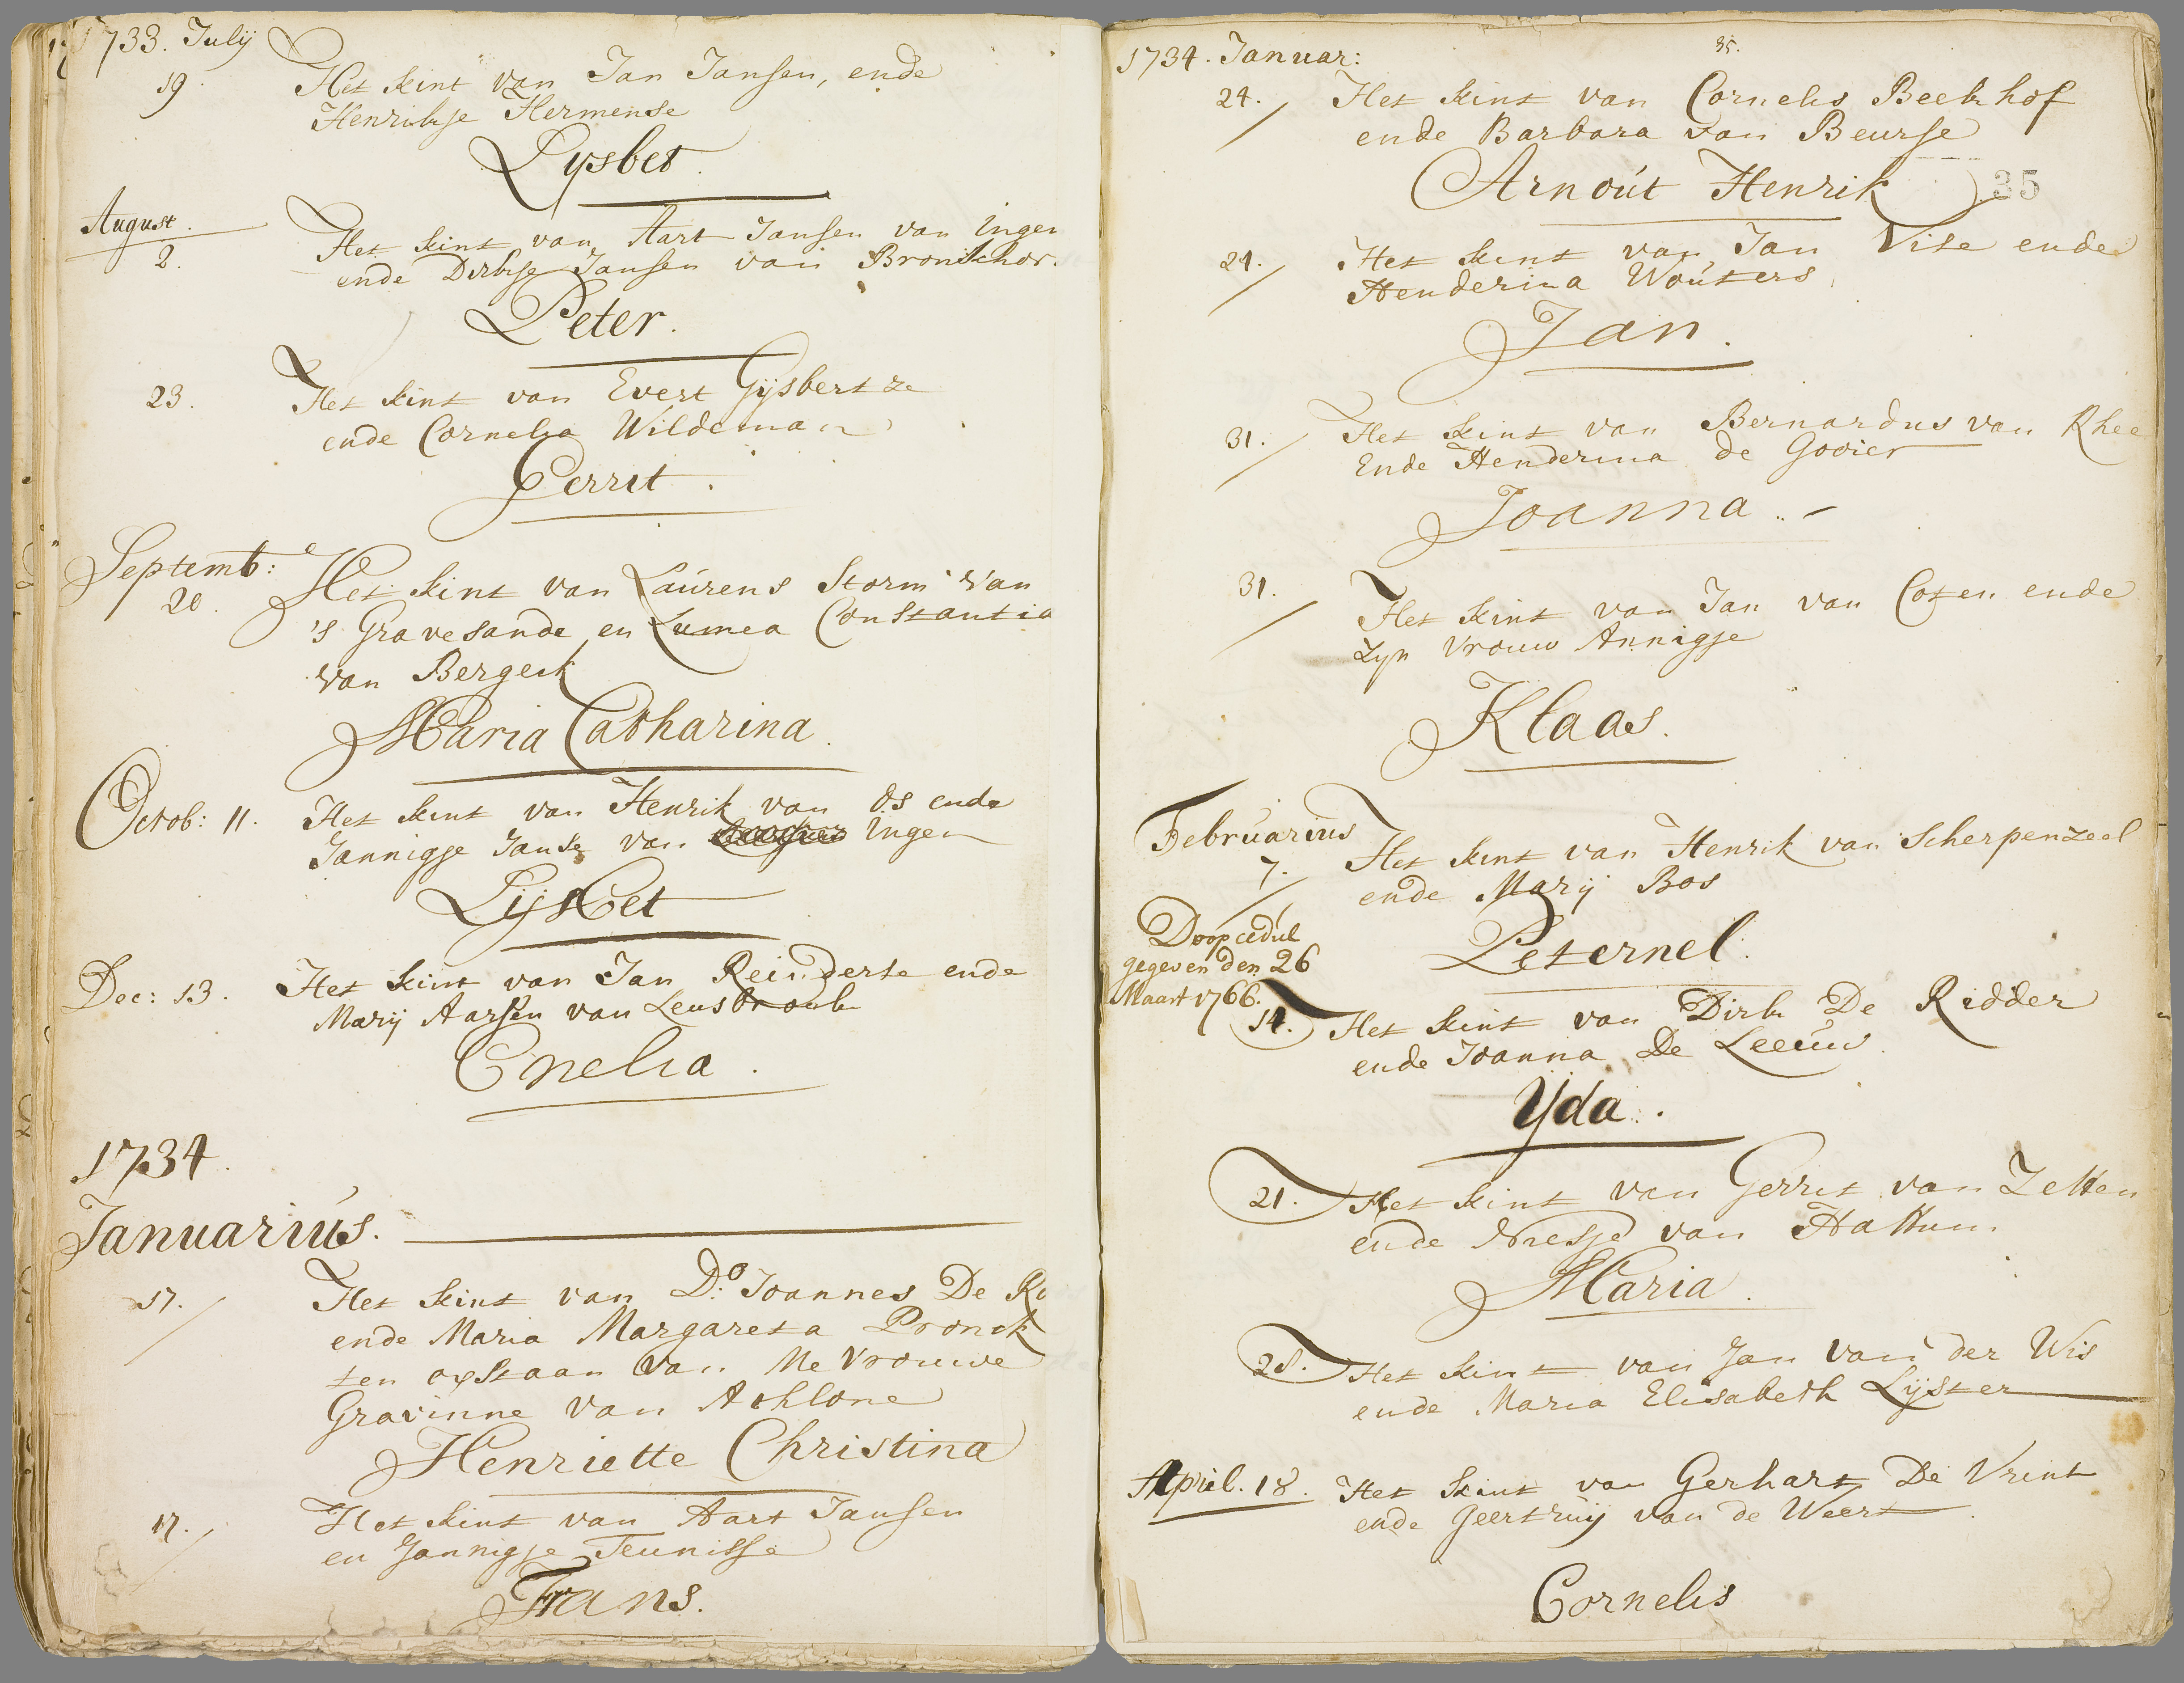 1733. Julij
19. Het kint van Jan Jansen, ende
Henrikje Hermense
Lysbet.
August.
2. Het kint van Aart Jansen van Ingen
ende Dirkje Jansen van Bronkhor.
Peter.
23. Het kint van Evert Gijsbertze
ende Cornelia Wildeman
Gerrit.
Septemb:
20. Het kint van Laurens Storm van
's Gravesande en Lumea Constantia
van Bergeik
Maria Catharina.
Octob: 11. Het kint van Henrik van Os ende
Jannigje Janse van Ingen
Lijsbet
Dec: 13. Het kint van Jan Reinderse ende
Marij Aarsen van Leusbroek
Cnelia.
1734.
Januarius.
17. Het kint van Do: Joannes De Ro
ende Maria Margareta Pronck
ten opstaan van Mevrouwe
Gravinne van Athlone
Henriette Christina
17. Het kint van Aart Jansen
en Jannigje Teunisse
Frans.
1734. Januar:
35.
24. Het kint van Cornelis Beekhof
ende Barbara van Beurse
Arnout Henrik
35
24. Het kint van Jan Vise ende
Henderina Wouters
Jan.
31. Het kint van Bernardus van Rhee
Ende Henderina de Gooier
Joanna.
31. Het kint van Jan van Coten ende
Zyn Vrouw Annigje
Klaas.
Februarius
7. Het kint van Henrik van Scherpenzeel
ende Marij Bos
Peternel.
Doopcedul
gegeven den 26
Maart 1766.
14. Het kint van Dirk De Ridder
ende Joanna De Leeuw
Yda.
21. Het kint van Gerrit van Zetten
ende van Hattum
Maria.
28. Het kint van Jan van der Wis
ende Maria Elisabeth Lijster
April. 18. Het kint van Gerhart De Vrint
ende Geertruij van de Weert.
Cornelis